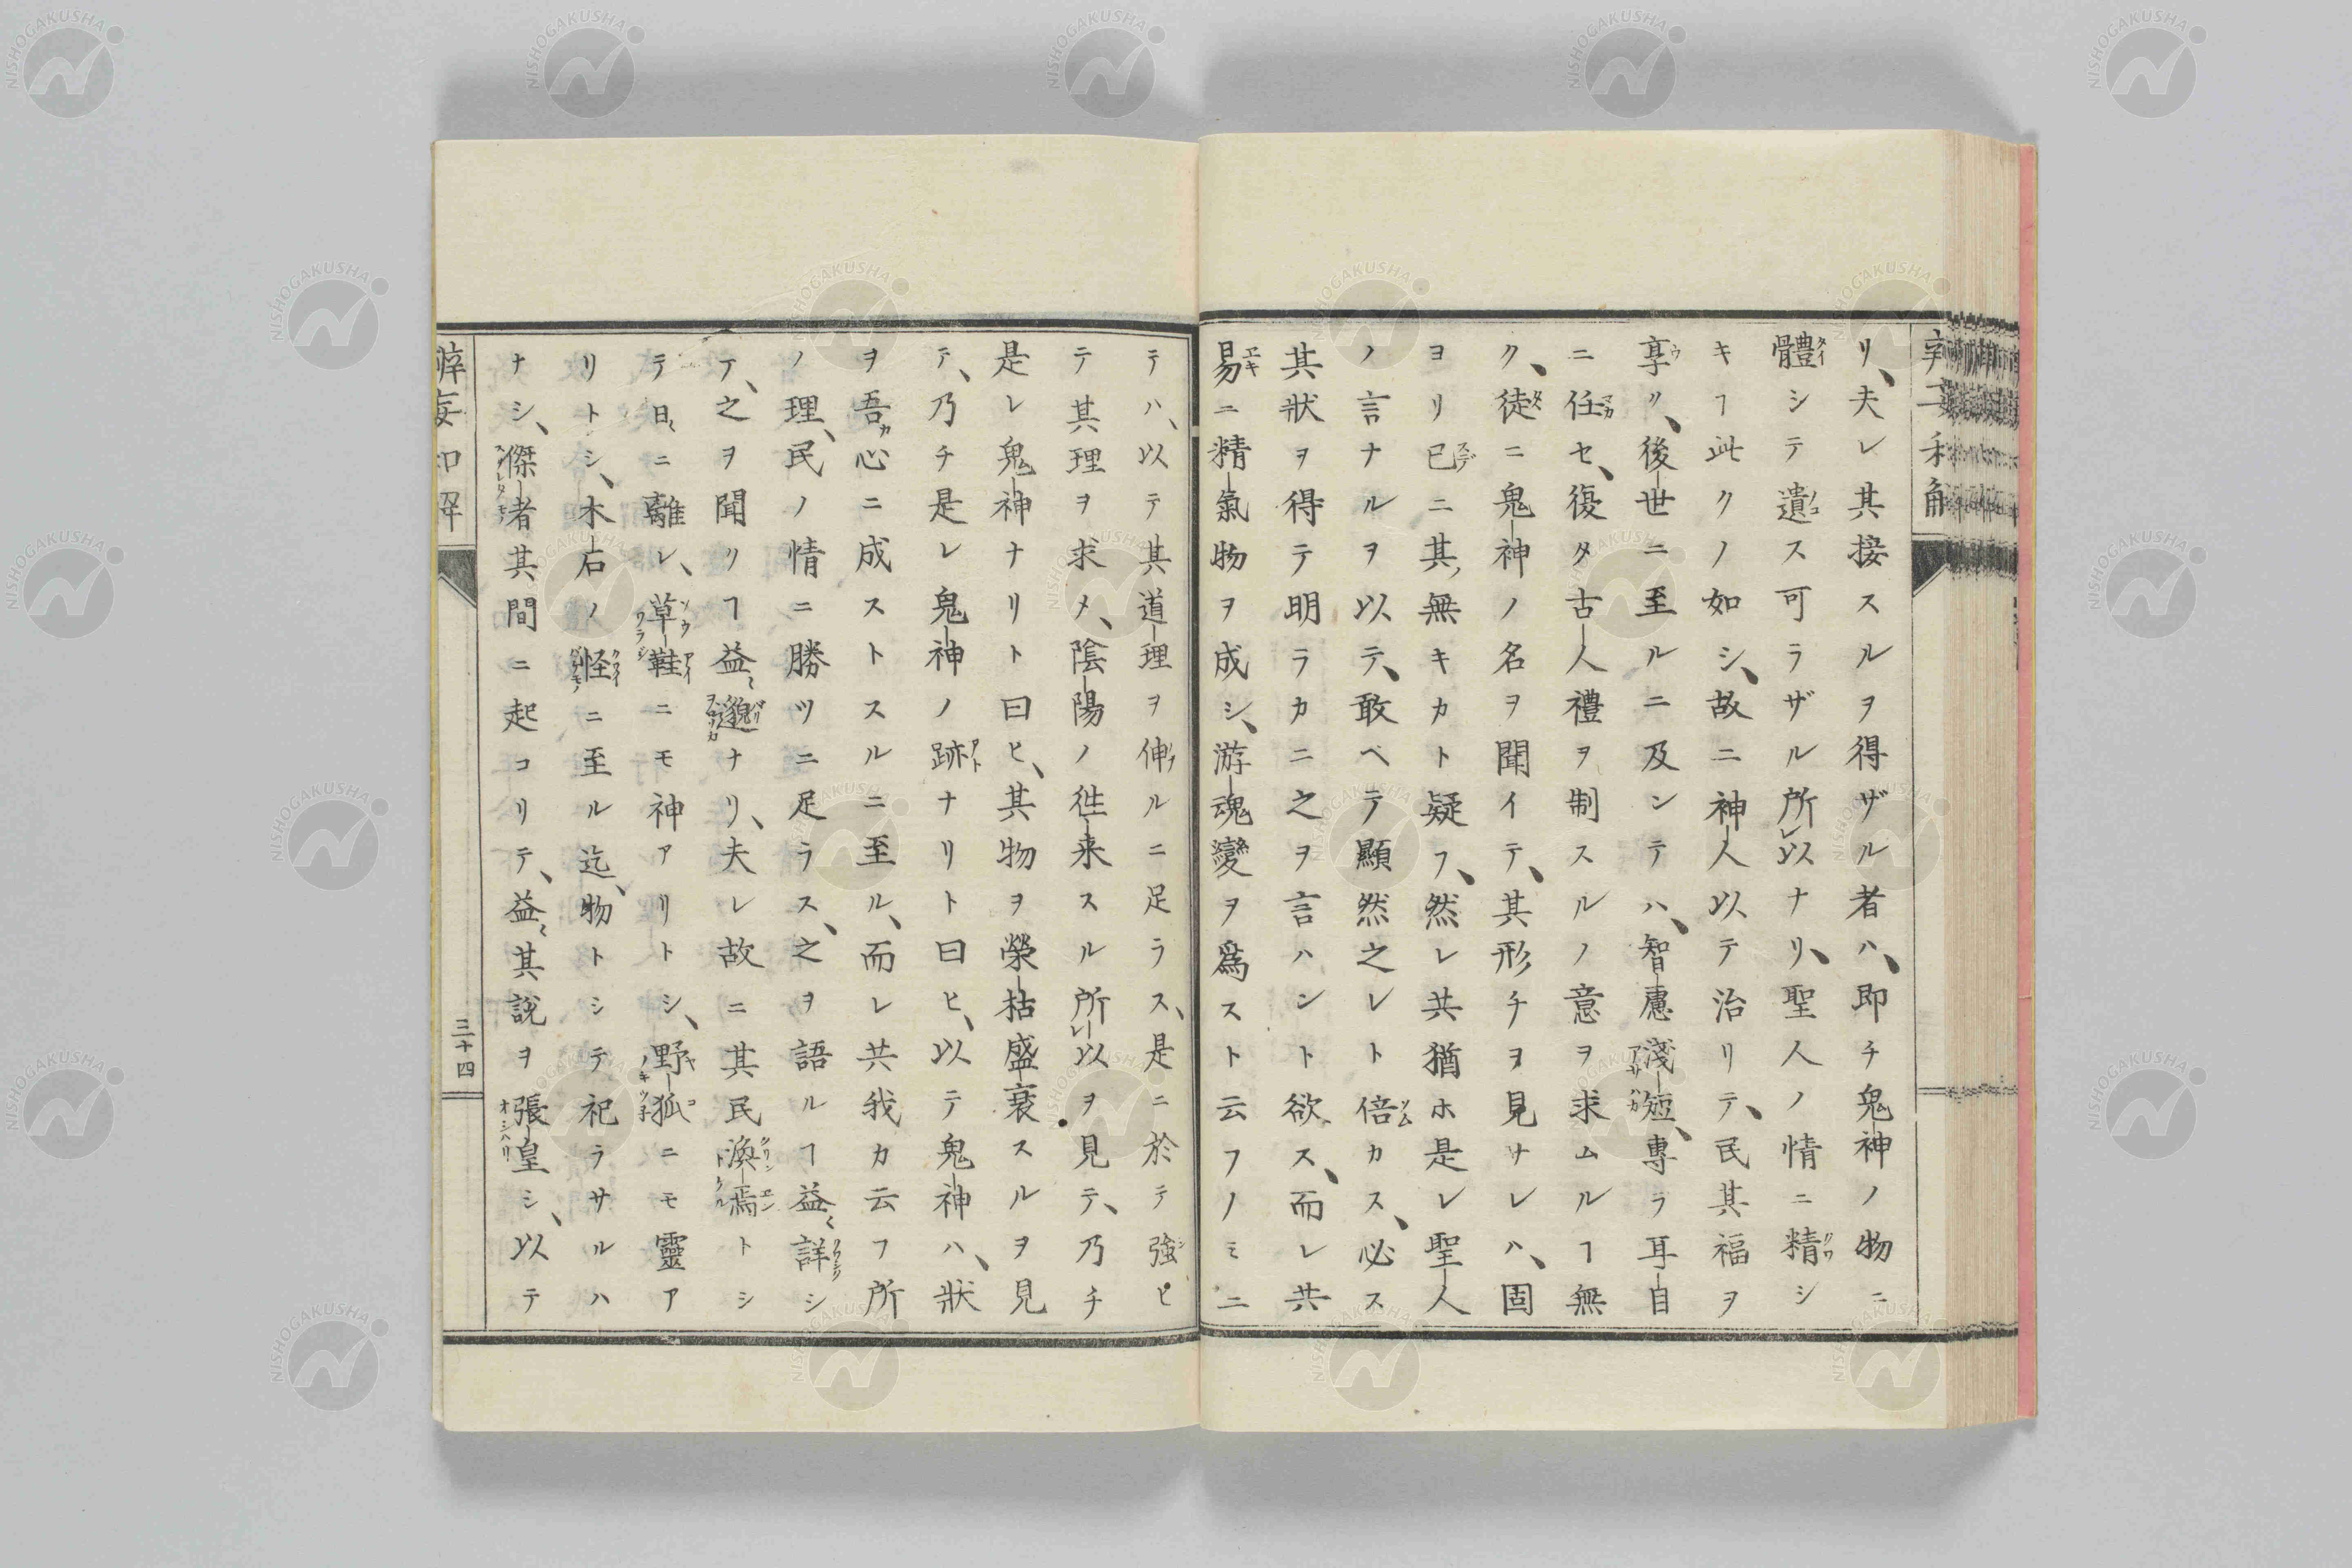 リ、夫レ其接スルヲ得ザル者ハ、即チ鬼神ノ物ニ
體シテ遺ス可ラザル所以ナリ、聖人ノ情ニ精シ
キヿ此クノ如シ、故ニ神人以テ治リテ、民其福ヲ
享ク、後世ニ至ルニ及ンテハ、智慮淺短、專ラ耳自
ニ任セ、復タ古人禮ヲ制スルノ意ヲ求ムルヿ無
ク、徒ニ鬼神ノ名ヲ聞イテ、其形チヲ見サレハ、固
ヨリ已ニ其無キカト疑フ、然レ共猶ホ是レ聖人
ノ言ナルヲ以テ、敢ベテ顯然之レト倍カス、必ス
其狀ヲ得テ明ラカニ之ヲ言ハント欲ス、而レ共
易ニ精氣物ヲ成シ、游魂變ヲ爲スト云フノミニ
テハ、以テ其道理ヲ伸ルニ足ラス、是ニ於テ強ヒ
テ其理ヲ求メ、陰陽ノ徃来スル所以ヲ見テ、乃チ
是レ鬼神ナリト曰ヒ、其物ヲ榮枯盛衰スルヲ見
テ、乃チ是レ鬼神ノ跡ナリト曰ヒ、以テ鬼神ハ、狀
ヲ吾心ニ成ストスルニ至ル、而レ共我カ云フ所
ノ理、民ノ情ニ勝ツニ足ラス、之ヲ語ルヿ益〻詳シ
テ、之ヲ聞クヿ益〻邈ナリ、夫レ故ニ其民渙焉トシ
テ日〻ニ離レ、草鞋ニモ神アリトシ、野狐ニモ靈ア
リトシ、木石ノ怪ニ至ル迄、物トシテ祀ラサルハ
ナシ、傑者其間ニ起コリテ、益〻其說ヲ張皇シ、以テ
三十四